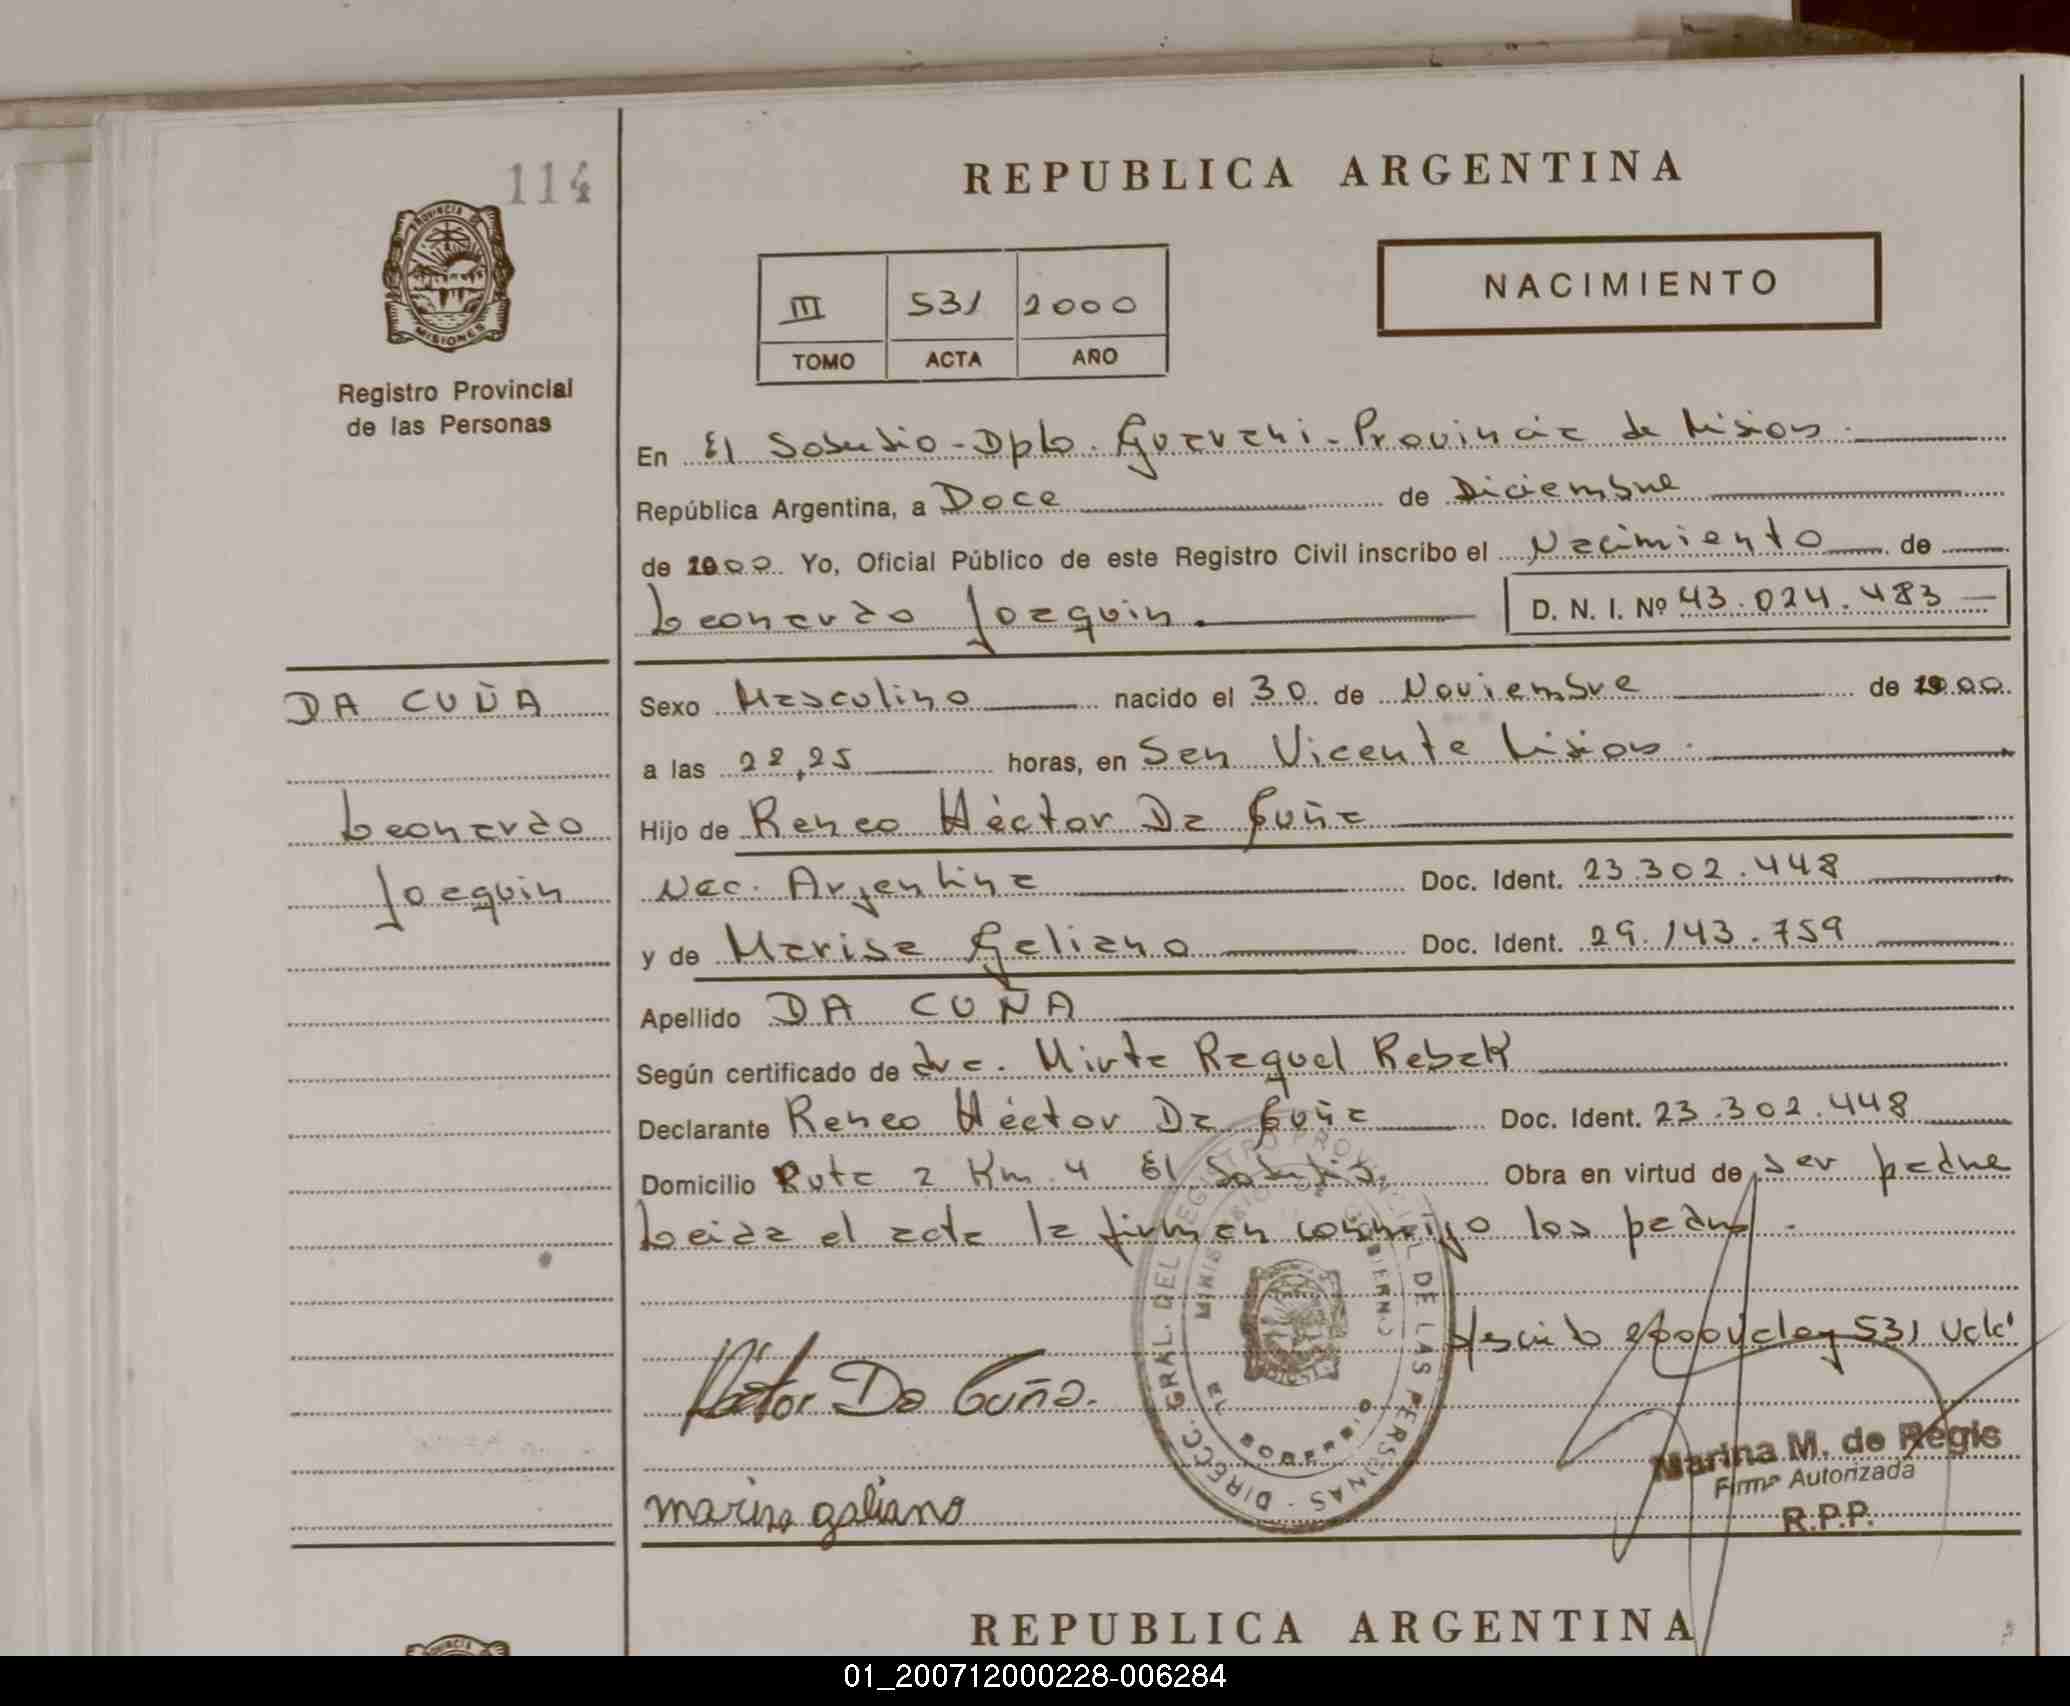 114
PROVINCIA DE
MISIONES
Registro Provincial
de las Personas
REPUBLICA ARGENTINA
III 531 2000
TOMO ACTA AÑO
NACIMIENTO
En El Soberbio - Dpto. Guarani - Provincia de Misiones.
República Argentina, a Doce de Diciembre
de 2000 Yo, Oficial Público de este Registro Civil inscribo el Nacimiento de
Leonardo Joaquin.
D. N. I. Nº 43.024.483
DA CUÑA
Leonardo
Joaquin
Sexo Masculino nacido el 30 de Noviembre de 2000
a las 22,25 horas, en San Vicente Misiones.
Hijo de Reneo Héctor Da Cuña
Nac. Argentina Doc. Ident. 23.302.448
y de Marisa Galiano Doc. Ident. 29.143.759
Apellido DA CUÑA
Según certificado de dra. Mirta Raquel Rebak
Declarante Reneo Héctor Da Cuña Doc. Ident. 23.302.448
Domicilio Ruta 2 Km. 4 El Soberbio. Obra en virtud de ser padre
Leida el acta la firman conmigo los padres.
DIRECC. GRAL. DEL REGISTRO PROVINCIAL DE LAS PERSONAS
MINISTERIO DE GOBIERNO
EL SOBERBIO
531 Vale
Héctor Da Cuña.
Marina M. de Regis
Firma Autorizada
R.P.P.
marisa galiano
REPUBLICA ARGENTINA
01_200712000228-006284